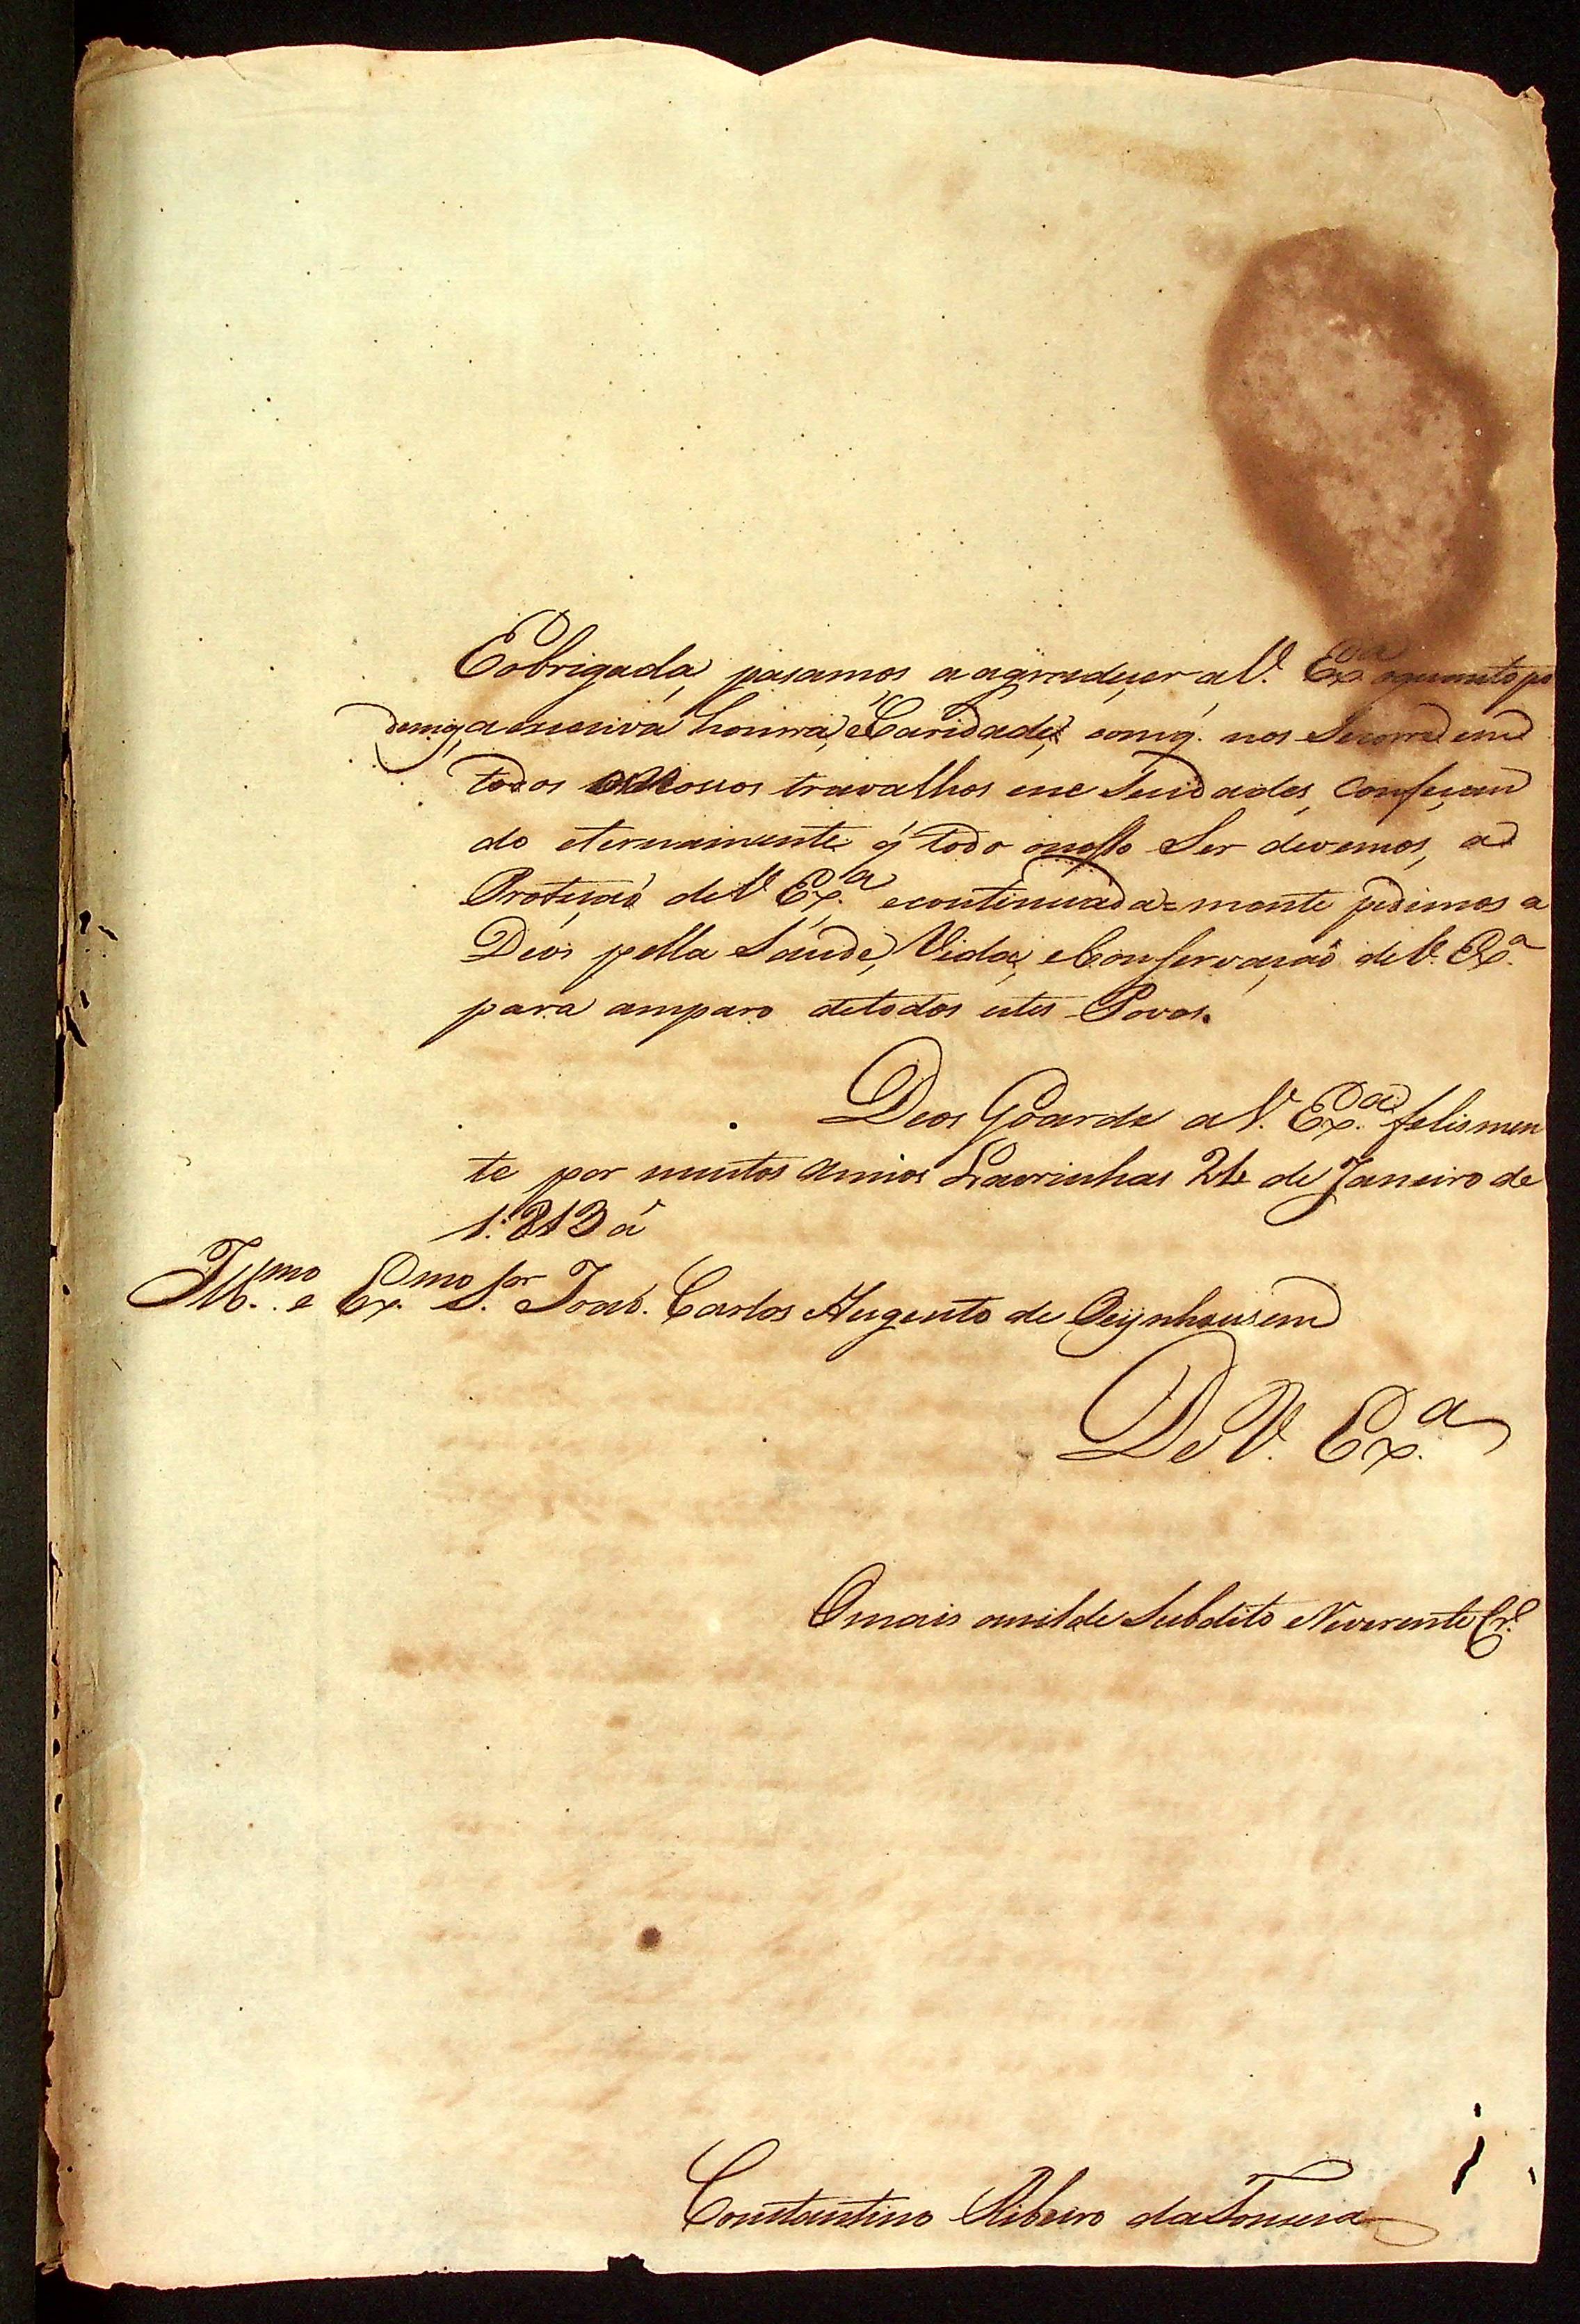 Eobrigada, pasamos aagradeçer aV. Ex.ª oquanto po
demos, a excesiva honra, eCaridade, comq. nos Secorre em
todos os nossos travalhos ene Seçidades, Confeçan
do eternamente q̃ todo onosso Ser devemos, a
Proteçaõ deV. Ex.ª econtinuada=mente pedimos a
Deos pella Saude, Vida, eConservaçaõ deV. Ex.ª
para amparo detodos estes Povos.
Deos Goarde aV. Ex.ª felismen
te por muntos annos Lavrinhas 24 de Janeiro de
1.813 á
Ill.mo e Ex.mo S.or Joaõ. Carlos Augusto de Oeynhausem
DeV. Ex.ª
Omais omilde Subdito eReverente Cr.º
Constantino Ribeiro da Fonseca